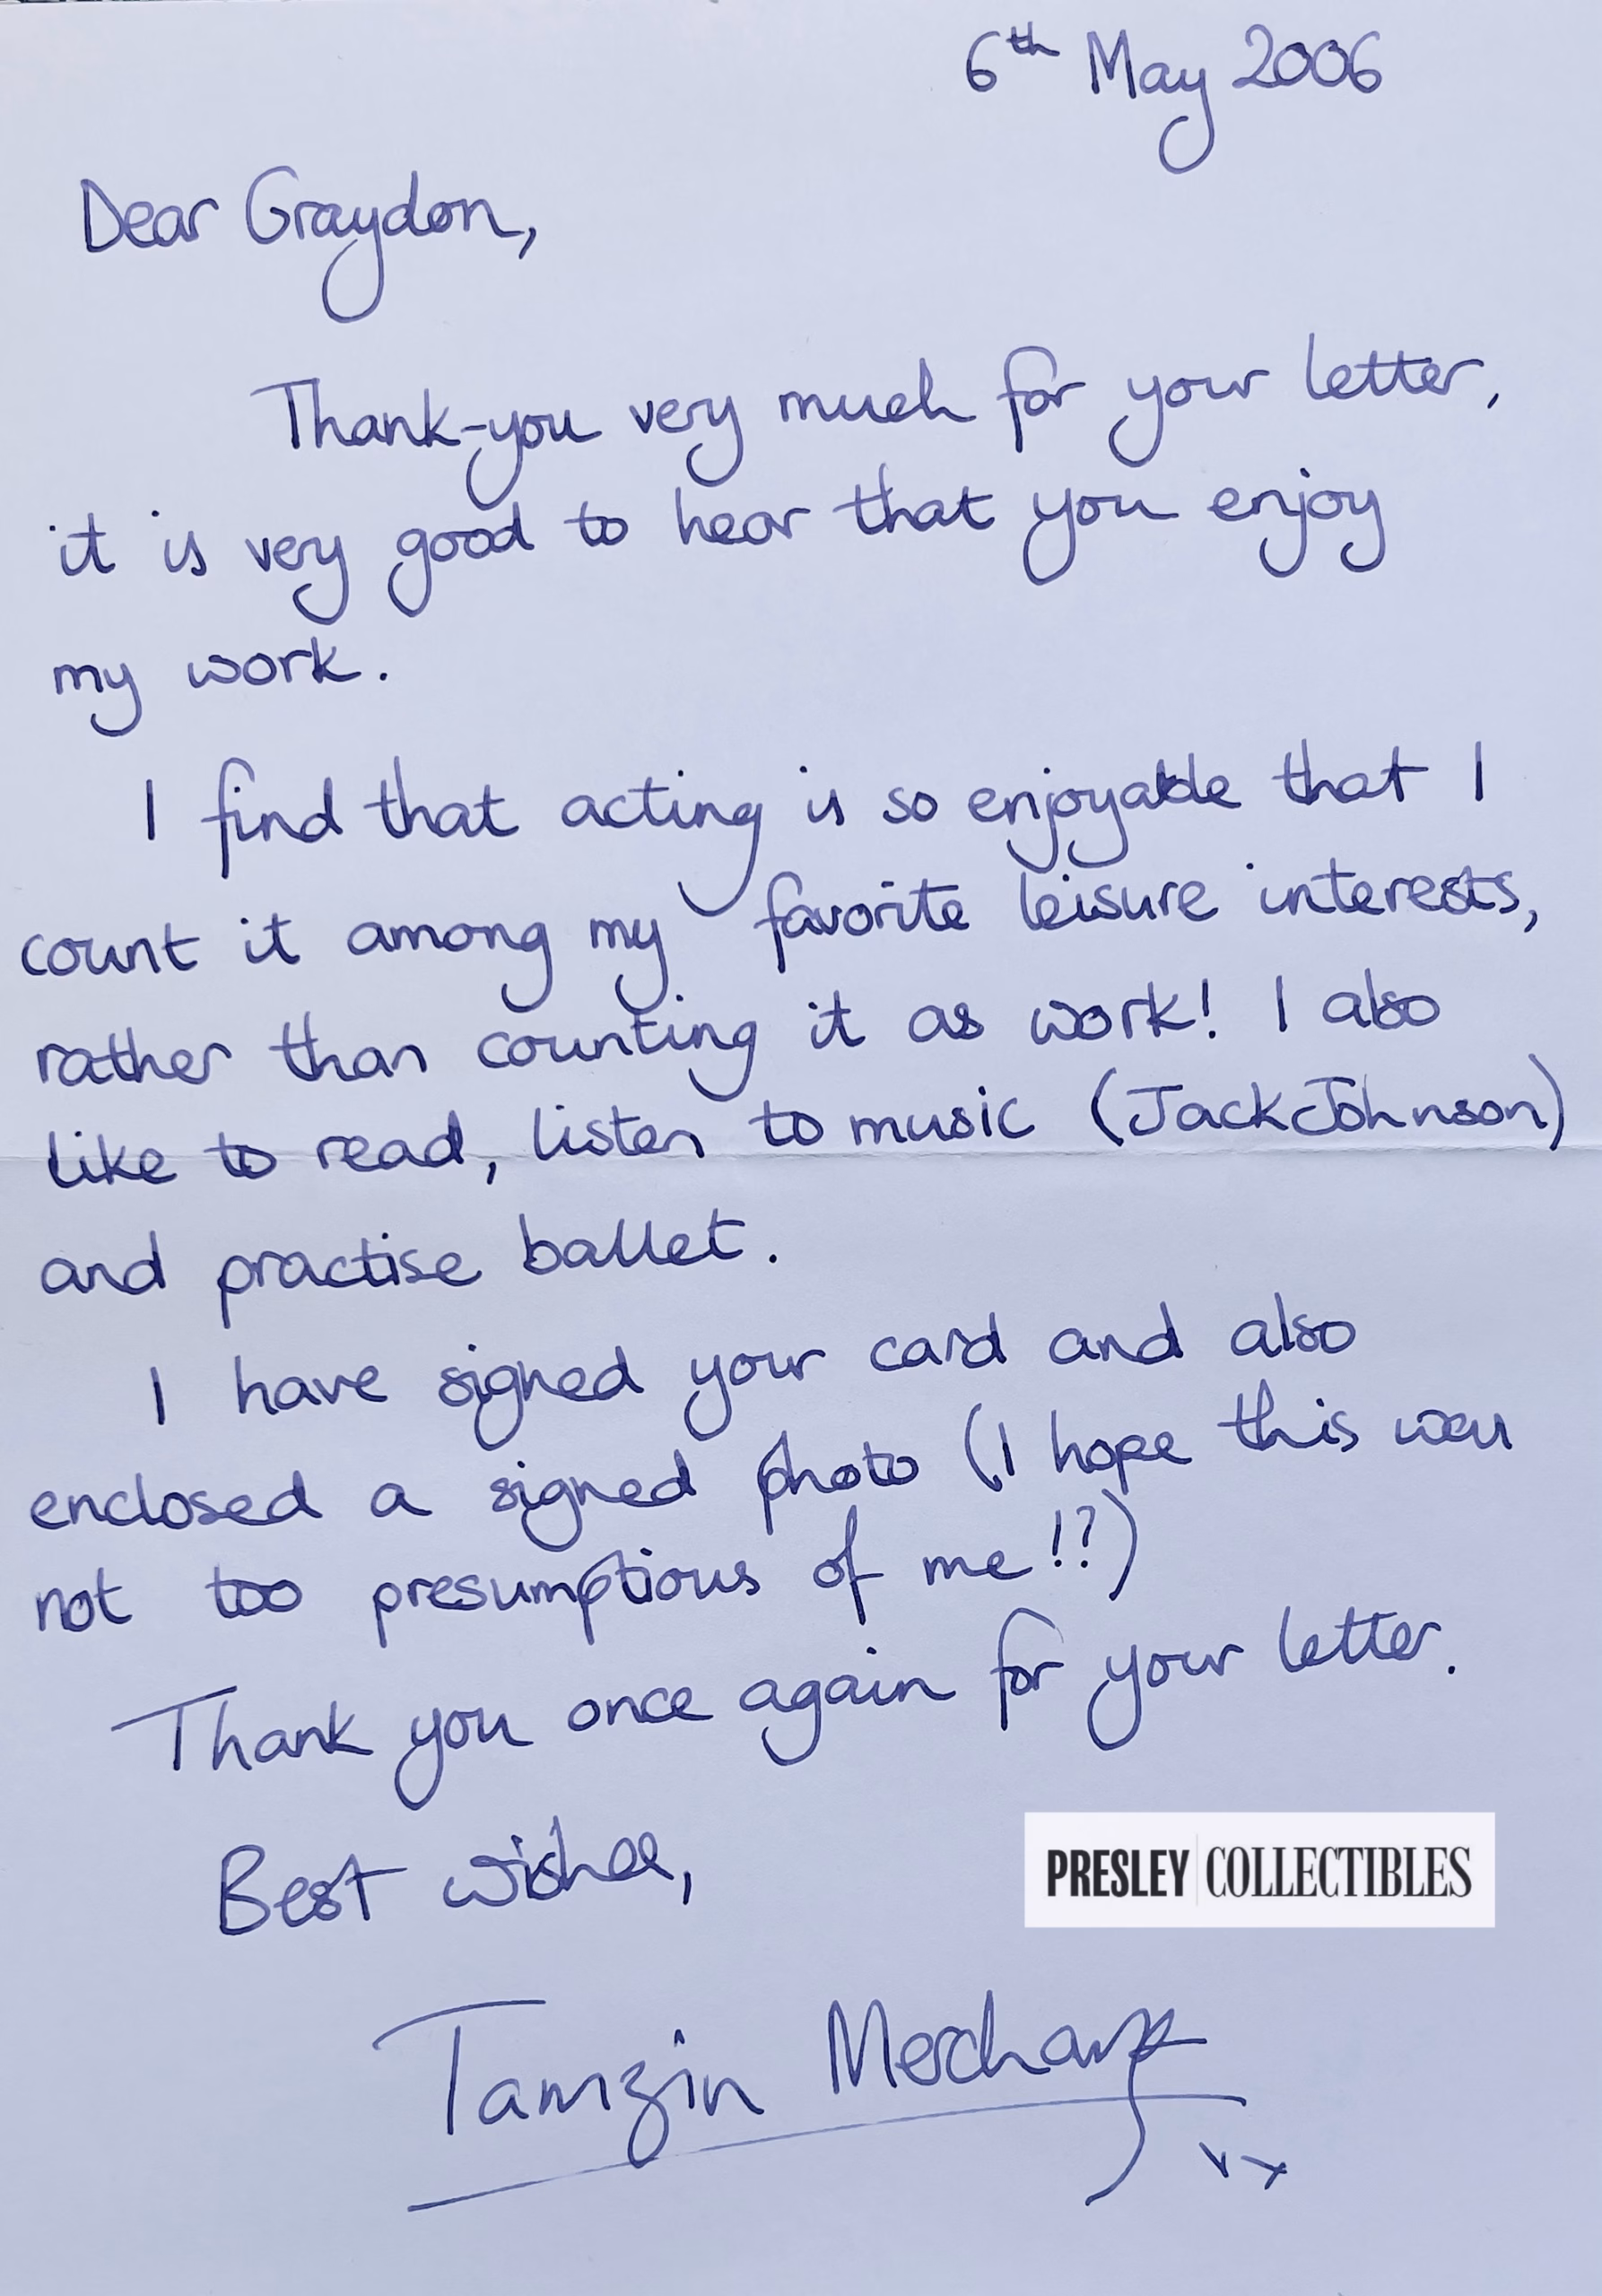 6th May 2006
Dear Graydon,
Thank-you very much for your letter,
it is very good to hear that you enjoy
my work.
I find that acting is so enjoyable that I
count it among my favorite leisure interests,
rather than counting it as work! I also
like to read, listen to music (Jack Johnson)
and practise ballet.
I have signed your card and also
enclosed a signed photo (I hope this was
not too presumptious of me!?)
Thank you once again for your letter.
Best wishes,
PRESLEY COLLECTIBLES
Tamzin Merchant
xx